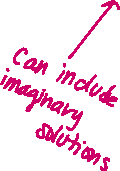 Can include
imaginary
solutions